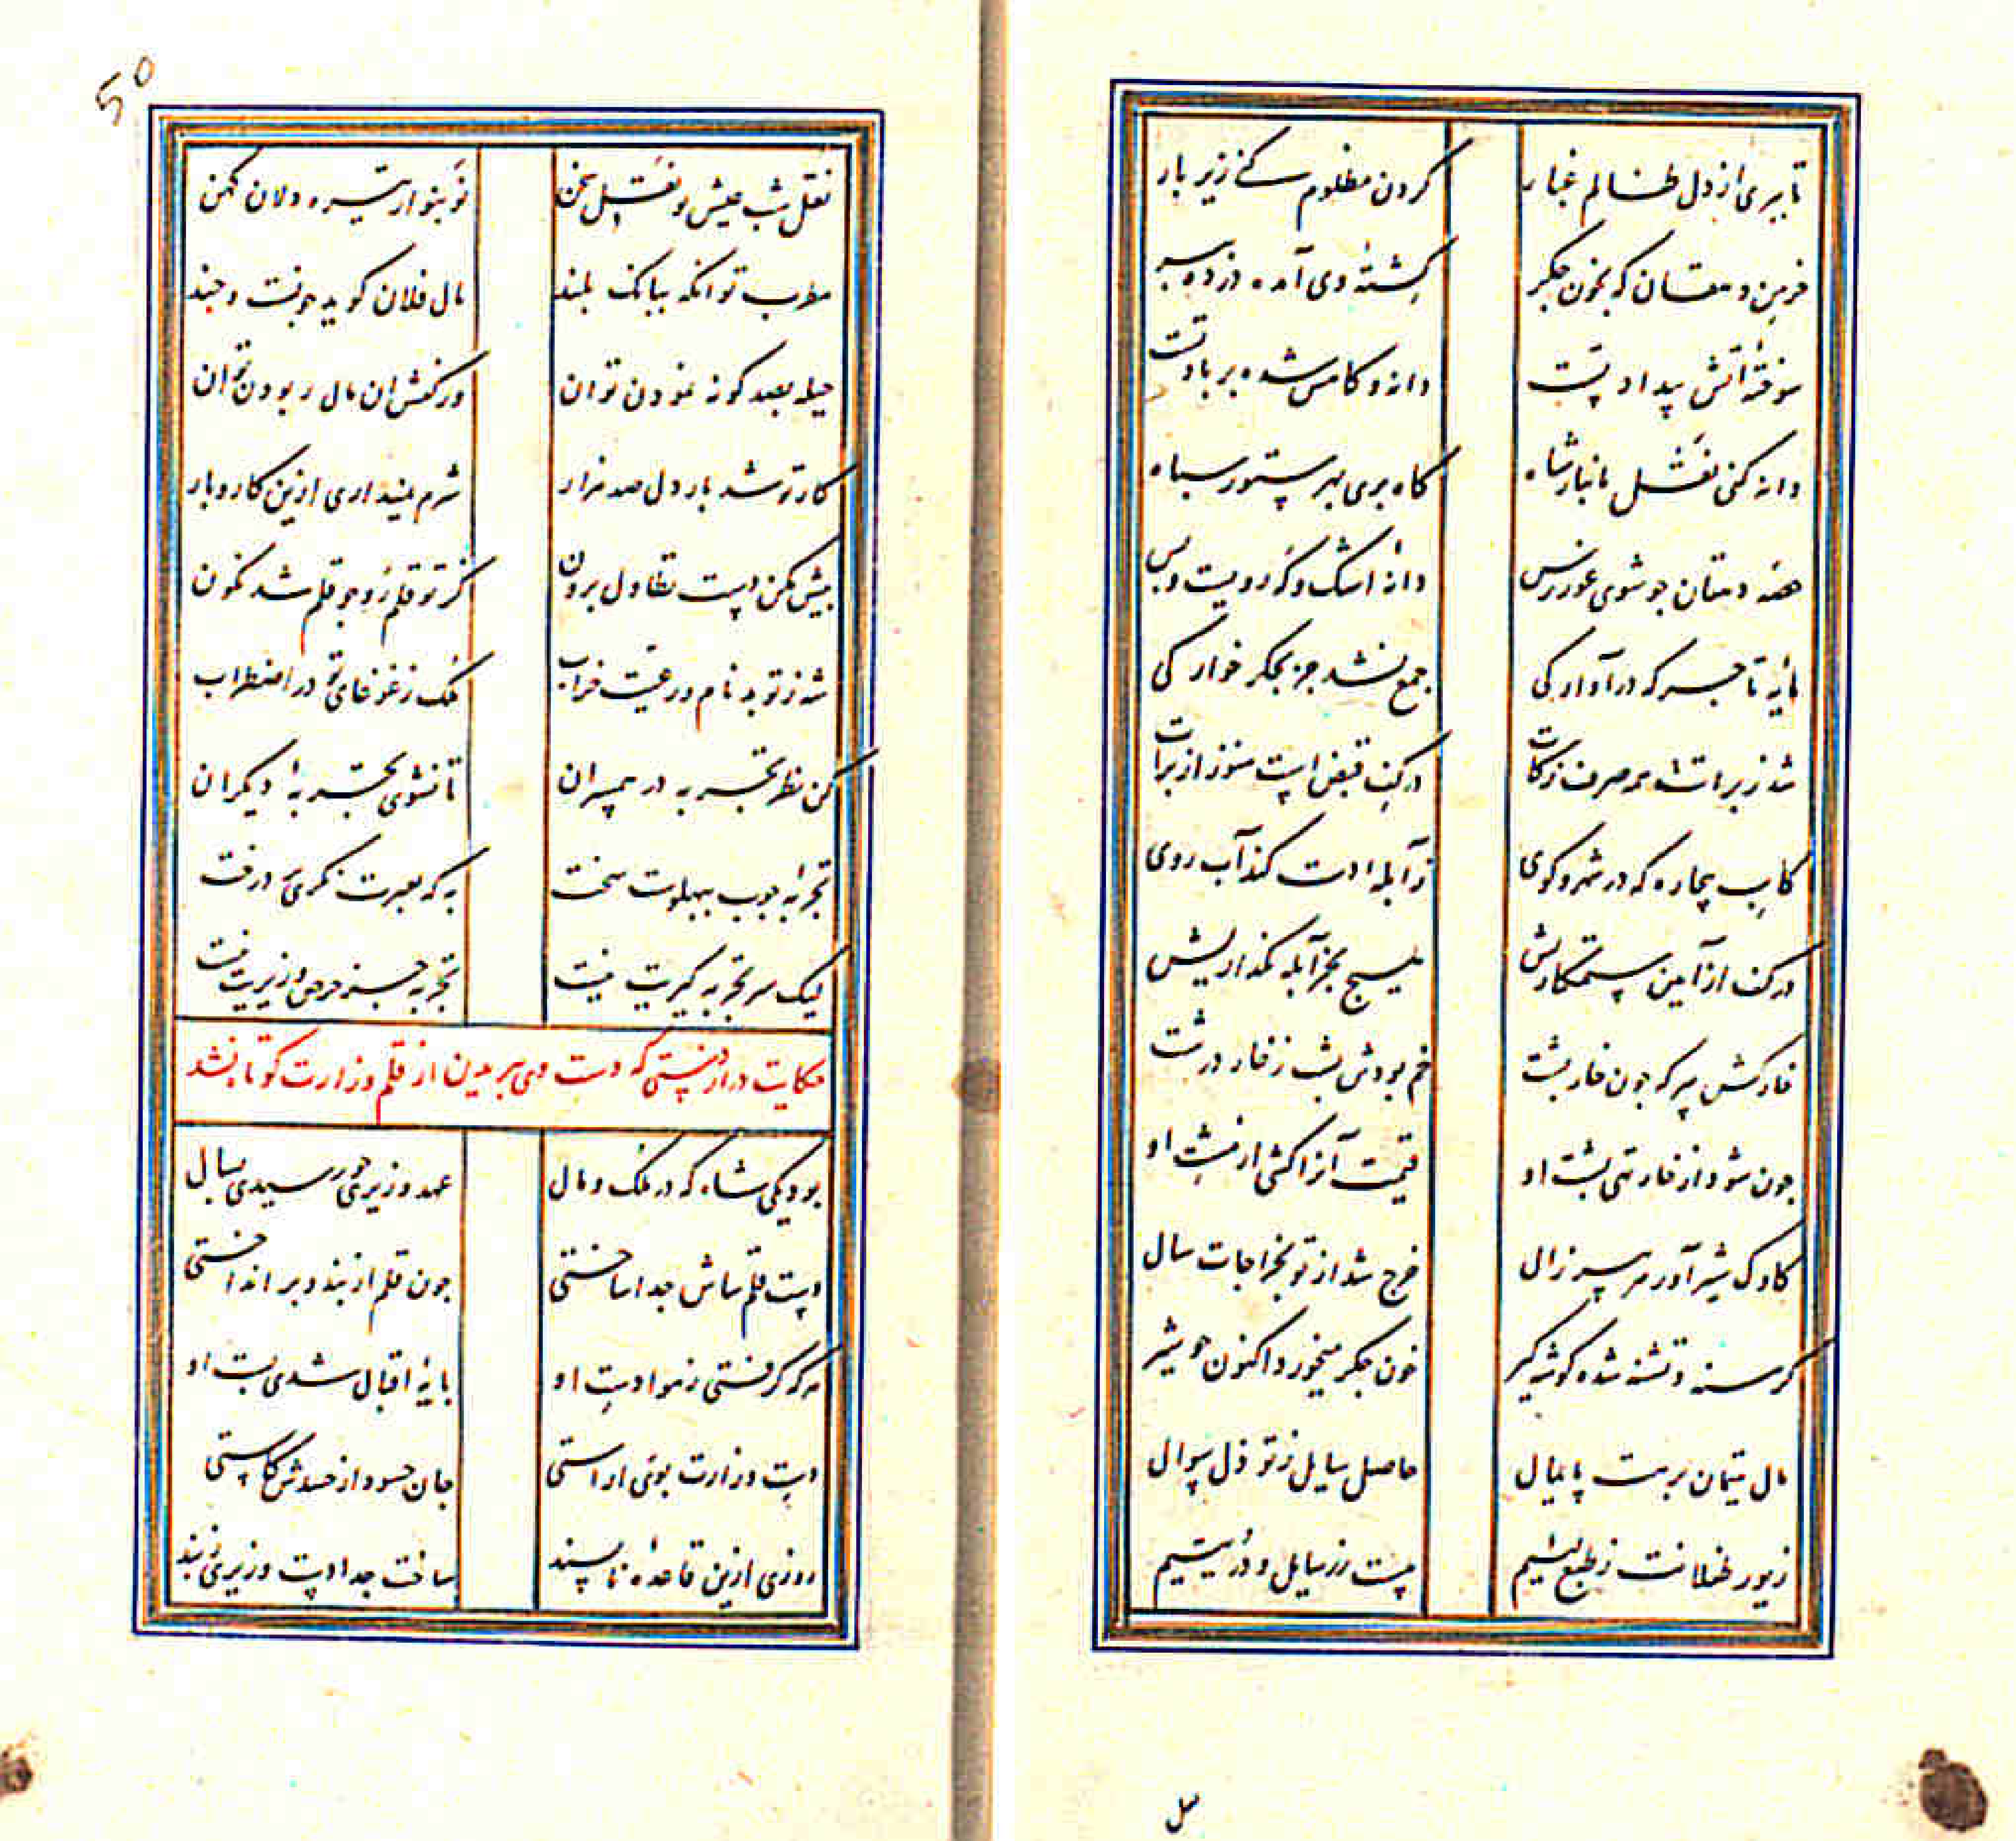 تا ببری از دل ظالم غبار
گردن مظلوم کنی زیر بار
خرمن دهقان که بخون جگر
کشتهٔ وی آمده در ده بسر
سوختهٔ آتش بیداد تست
دانه و کاهش شده بر باد تست
دانه کنی نقل بانبار شاه
کاه بری بهر ستور سپاه
حصهٔ دهقان جو شوی غوررس
دانهٔ اشک و که رویست و بس
مایهٔ تاجر که در آوارگی
جمع نشد جز بجگر خوارگی
شد ز برات همه صرف زکات
در کف قبض است هنوز از برات
کاسب بیچاره که در شهر و کوی
ز آبلهٔ دست کند آب روی
در کف از آیین ستمکاریش
هیچ بجز آبله نگذاریش
خارکش پیر که جون خارپشت
خم بودش پشت ز خار درشت
جون شود از خار تهی پشت او
قیمت آنرا کشی از مشت او
گاوک شیر آور هر پیر زال
خرج شد از تو بخراجات سال
گرسنه و تشنه شده گوشه گیر
خون جگر میخورد اکنون جو شیر
مال یتیمان ز برت پایمال
حاصل سایل ز تو ذل سوال
زیور طفلانت ز طبع لئیم
هست زر سایل و در یتیم
50
نقل شب عیش تو نقل سخن
نو بنو از تیره دلان کهن
مطرب تو آنکه ببانک بلند
مال فلان گوید جونست و جند
حیله بصد گونه نمودن توان
ور کفش آن مال ربودن توان
کار تو شد بار دل صد هزار
شرم نمیداری ازین کار و بار
بیش مکن دست تطاول برون
کز تو قلم رو جو قلم شد نگون
شه ز تو بد نام و رعیت خراب
ملک ز غوغای تو در اضطراب
کن نظر تجربه در همسران
تا نشوی تجربهٔ دیگران
تجربهٔ جوب بپهلوت سخت
به که بعبرت نگری در درخت
لیک سر تجربه گیریت نیست
تجربه جز حرص وزیریت نیست
حکایت دراز دستی که دست وی ببریدن از قلم وزارت کوتاه نشد
بود یکی شاه که در ملک و مال
عهد وزیری جو رسیدی بسال
دست قلم ساش جدا ساختی
جون قلم از بند بر انداختی
هر که گرفتی ز هوا دست او
پایهٔ اقبال شدی پست او
دست وزارت بوی آراستی
جان حسود از حسدش کاستی
روزی ازین قاعدهٔ ناپسند
ساخت جدا دست وزیری ز بند